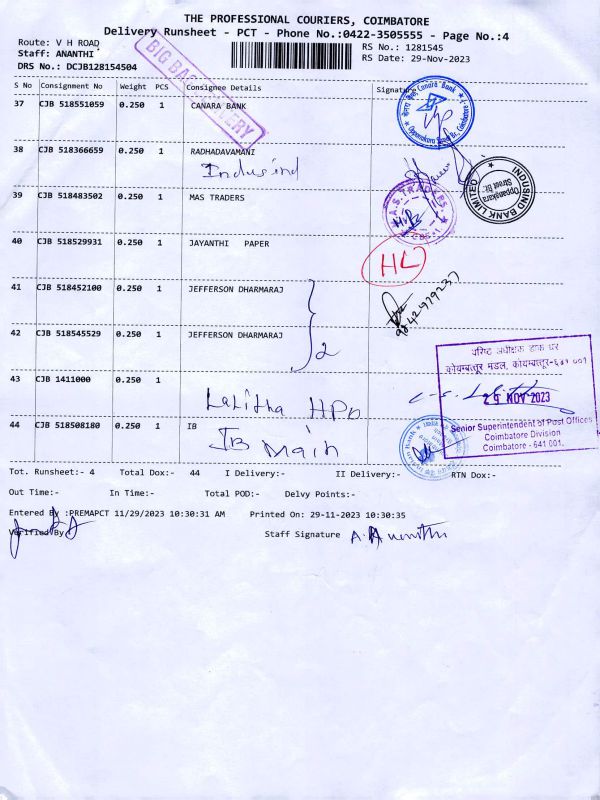 THE PROFESSIONAL COURIERS, COIMBATORE
Delivery Runsheet - PCT - Phone No.:0422-3505555 - Page No.:4
Route: V H ROAD
Staff: ANANTHI
DRS No.: DCJB128154504
RS No.: 1281545
RS Date: 29-Nov-2023
S No Consignment No Weight PCS Consignee Details Signature
37 CJB 518551059 0.250 1 CANARA BANK
38 CJB 518366659 0.250 1 RADHADAVAMANI
Indusind
39 CJB 518483502 0.250 1 MAS TRADERS
40 CJB 518529931 0.250 1 JAYANTHI PAPER
HL
41 CJB 518452100 0.250 1 JEFFERSON DHARMARAJ
9842979237
42 CJB 518545529 0.250 1 JEFFERSON DHARMARAJ
2
43 CJB 1411000 0.250 1
Lalitha HPO
44 CJB 518508180 0.250 1 IB
IB Main
BIG BAG DELIVERY
Canara Bank
INDUSIND BANK LIMITED
Oppanakara
Street Br.
वरिष्ठ अधीक्षक डाक घर
कोयम्बत्तूर मंडल, कोयम्बत्तूर-६४१ ००१
29 NOV 2023
Senior Superintendent of Post Offices
Coimbatore Division
Coimbatore - 641 001.
Tot. Runsheet:- 4 Total Dox:- 44 I Delivery:- II Delivery:- RTN Dox:-
Out Time:- In Time:- Total POD:- Delvy Points:-
Entered By :PREMAPCT 11/29/2023 10:30:31 AM Printed On: 29-11-2023 10:30:35
Verified By :
Staff Signature